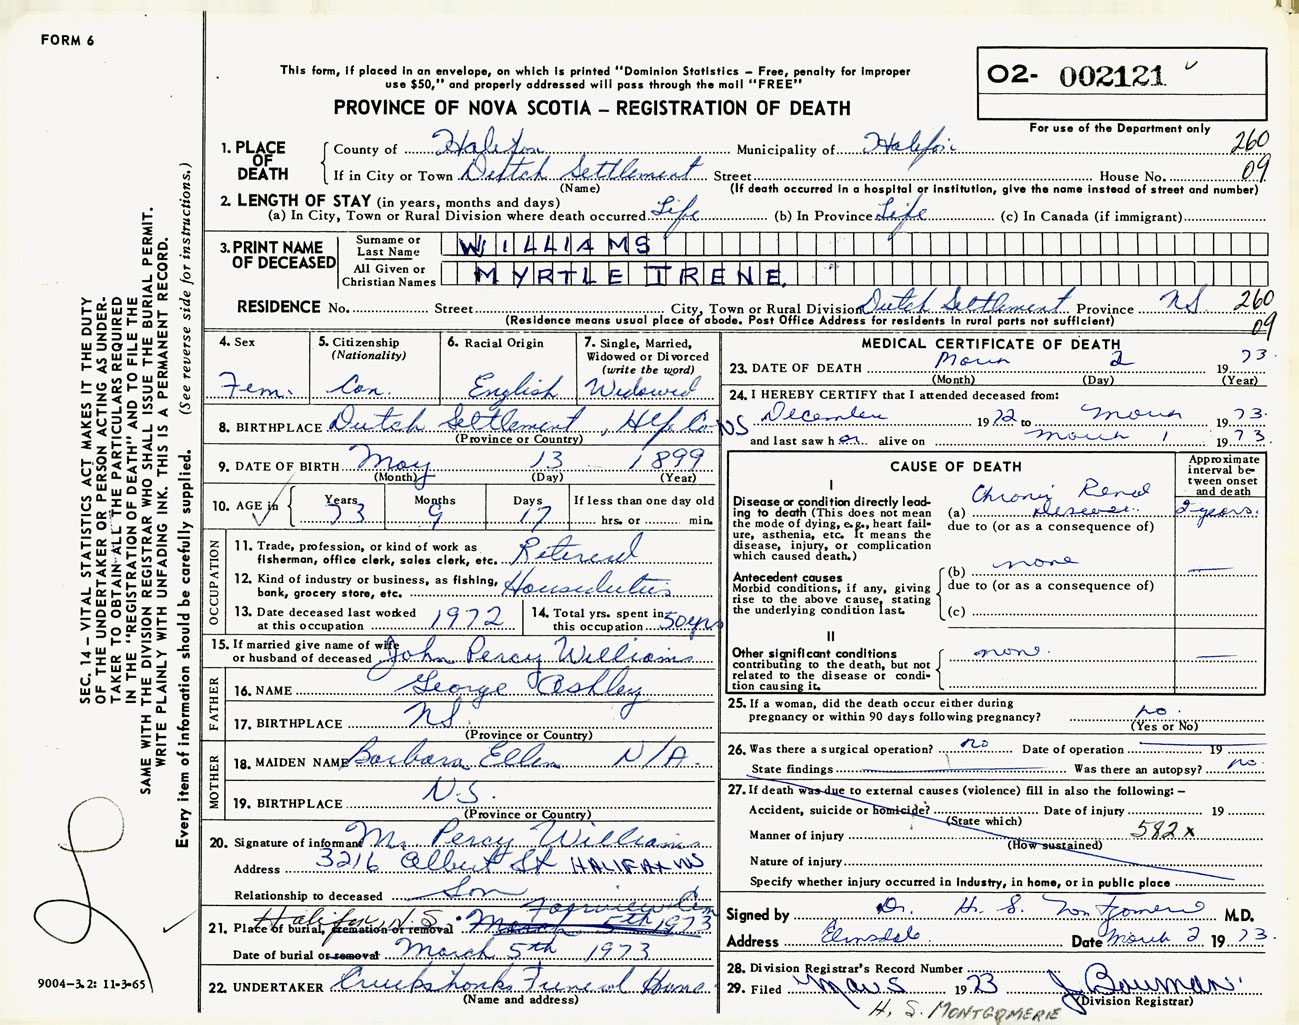 FORM 6
This form, if placed in an envelope, on which is printed "Dominion Statistics – Free, penalty for improper
use $50," and properly addressed will pass through the mail "FREE"
PROVINCE OF NOVA SCOTIA – REGISTRATION OF DEATH
O2- 002121
For use of the Department only
1. PLACE OF DEATH
County of Halifax Municipality of Halifax 260
If in City or Town Dutch Settlement Street House No. 09
(Name) (If death occurred in a hospital or institution, give the name instead of street and number)
2. LENGTH OF STAY (in years, months and days)
(a) In City, Town or Rural Division where death occurred Life (b) In Province Life (c) In Canada (if immigrant)
3. PRINT NAME OF DECEASED
Surname or Last Name WILLIAMS
All Given or Christian Names MYRTLE IRENE.
RESIDENCE No. Street City, Town or Rural Division Dutch Settlement Province NS. 260
(Residence means usual place of abode. Post Office Address for residents in rural parts not sufficient) 09
4. Sex Fem.
5. Citizenship (Nationality) Can.
6. Racial Origin English
7. Single, Married, Widowed or Divorced (write the word) Widowed
8. BIRTHPLACE Dutch Settlement, Hfx Co NS
(Province or Country)
9. DATE OF BIRTH May 13 1899
(Month) (Day) (Year)
10. AGE in Years 73 Months 9 Days 17 If less than one day old
hrs. or min.
OCCUPATION
11. Trade, profession, or kind of work as
fisherman, office clerk, sales clerk, etc. Retired
12. Kind of industry or business, as fishing,
bank, grocery store, etc. Houseduties
13. Date deceased last worked
at this occupation 1972
14. Total yrs. spent in
this occupation 50yrs
15. If married give name of wife
or husband of deceased John Percy Williams
FATHER
16. NAME George Ashley
17. BIRTHPLACE NS.
(Province or Country)
MOTHER
18. MAIDEN NAME Barbara Ellen N/A.
19. BIRTHPLACE N.S.
(Province or Country)
20. Signature of informant M. Percy Williams
Address 3216 Albert St HALIFAX NS
Relationship to deceased Son
Fairview Cem
21. Place of burial, cremation or removal Halifax, N.S. March 5th 1973
Date of burial or removal March 5th 1973
22. UNDERTAKER Cruikshanks Funeral Home
(Name and address)
MEDICAL CERTIFICATE OF DEATH
23. DATE OF DEATH March 2 1973.
(Month) (Day) (Year)
24. I HEREBY CERTIFY that I attended deceased from:
December 1972 to March 1973.
and last saw her alive on March 1 1973.
CAUSE OF DEATH
Approximate interval between onset and death
I
Disease or condition directly lead-
ing to death (This does not mean
the mode of dying, e.g., heart fail-
ure, asthenia, etc. It means the
disease, injury, or complication
which caused death.)
(a) Chronic Renal Disease 2 years.
due to (or as a consequence of)
Antecedent causes
Morbid conditions, if any, giving
rise to the above cause, stating
the underlying condition last.
(b) none
due to (or as a consequence of)
(c)
II
Other significant conditions
contributing to the death, but not
related to the disease or condi-
tion causing it.
none.
25. If a woman, did the death occur either during
pregnancy or within 90 days following pregnancy? no.
(Yes or No)
26. Was there a surgical operation? no Date of operation 19
State findings Was there an autopsy? no.
27. If death was due to external causes (violence) fill in also the following: –
Accident, suicide or homicide? Date of injury 19
(State which)
Manner of injury 582x
(How sustained)
Nature of injury
Specify whether injury occurred in industry, in home, or in public place
Signed by Dr. H. S. Montgomerie M.D.
Address Elmsdale. Date March 2 1973.
28. Division Registrar's Record Number
29. Filed Mar 5 1973 J Bauman.
(Division Registrar)
H. S. MONTGOMERIE
SEC. 14 – VITAL STATISTICS ACT MAKES IT THE DUTY
OF THE UNDERTAKER OR PERSON ACTING AS UNDER-
TAKER TO OBTAIN ALL THE PARTICULARS REQUIRED
IN THE "REGISTRATION OF DEATH" AND TO FILE THE
SAME WITH THE DIVISION REGISTRAR WHO SHALL ISSUE THE BURIAL PERMIT.
WRITE PLAINLY WITH UNFADING INK. THIS IS A PERMANENT RECORD.
Every item of information should be carefully supplied. (See reverse side for instructions.)
9004-3.2: 11-3-65